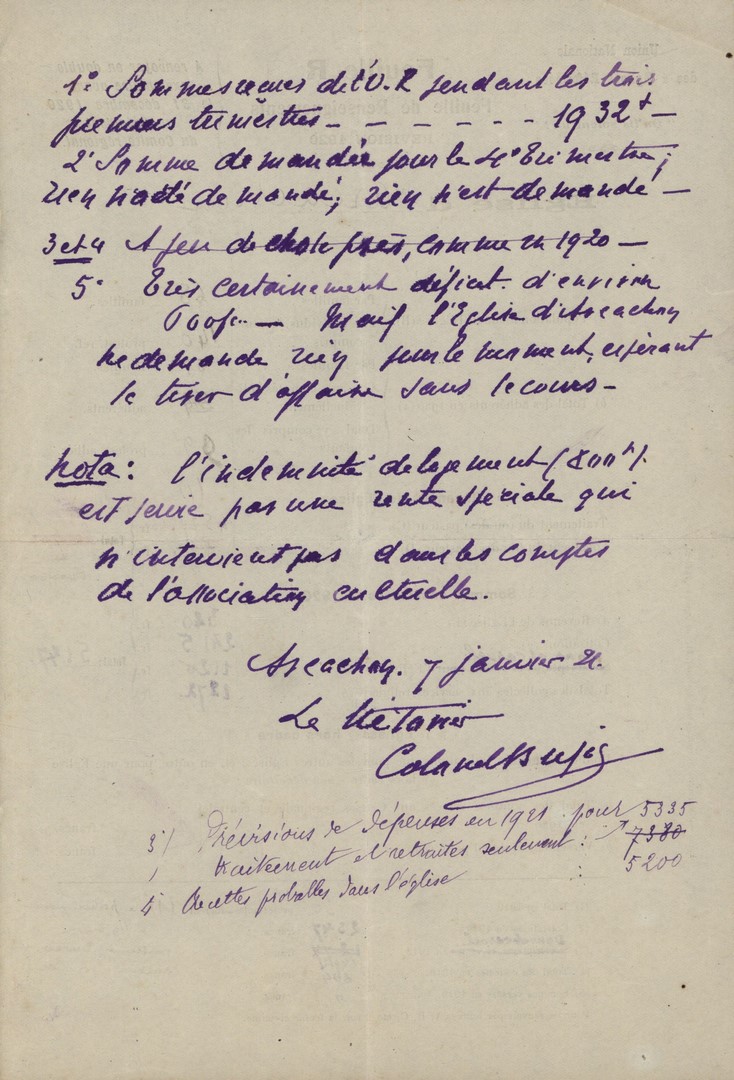 1° Sommes reçues de l'U. R pendant les trois
premiers trimestres — — — — — — 1932f —
2° Somme demandée pour le 4e trimestre;
rien n'a été demandé; rien n'est demandé —
3 et 4 A peu de chose près, comme en 1920 —
5° Très certainement déficit d'environ
700f.. — Mais l'Eglise d'Arcachon
ne demande rien pour le moment, espérant
se tirer d'affaire sans secours —
Nota: l'indemnité de logement (800f).
est servie par une rente spéciale qui
n'intervient pas dans les comptes
de l'association cultuelle.
Arcachon. 7 janvier 21.
Le
3°/ Prévisions de dépenses en 1921 pour 5335
traitement et retraites seulement : 7380
4° Recettes probables dans l'église : 5200